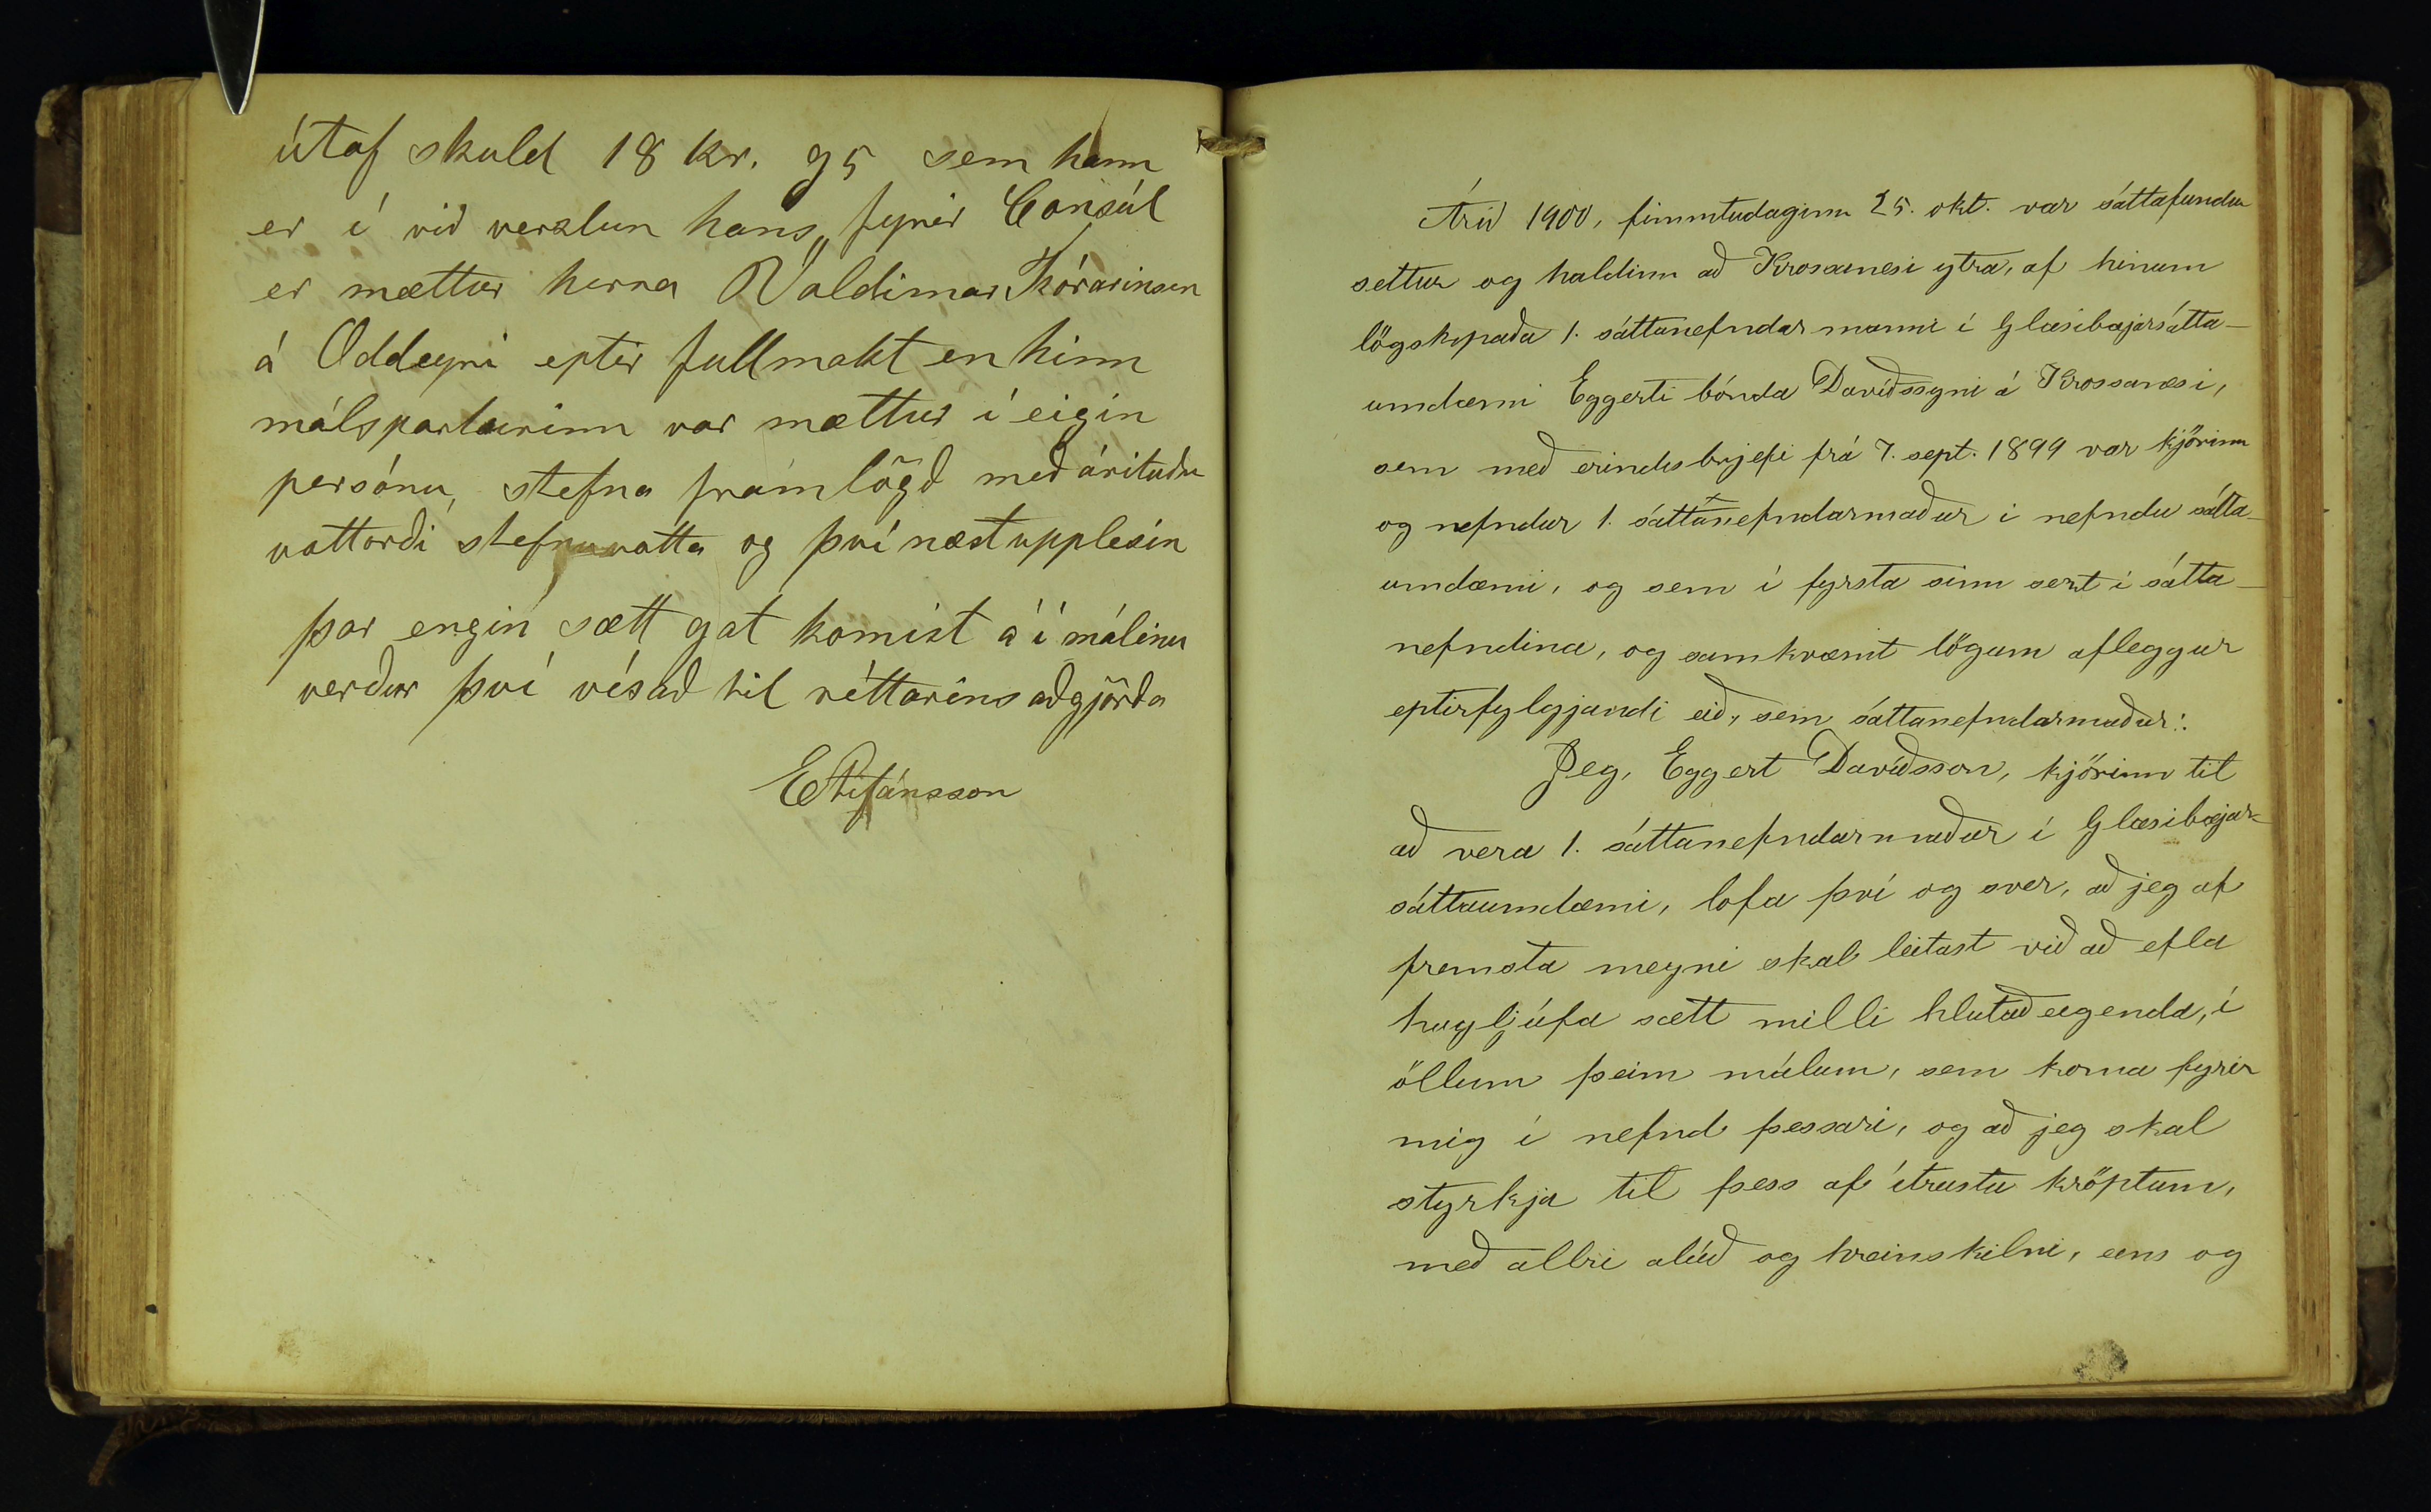 útaf skuld 18 kr. 95 sem hann
er í við verzlun hans„ fyrir Consúl
er mættur herra Valdimar Thórarinsen
á Oddeyri eptir fullmakt en hinn
málsparturinn var mættur í eigin
persónu, stefna framlögð með árituðu
vottorði stefnuvotta og því næst upplesin
þar engin sætt gat komist á í málinu
verður því vísað til réttarins aðgjörða
EStefánsson
Árið 1900, fimmtudaginn 25. okt. var sáttafundur
settur og haldinn að Krossanesi ytra, af hinum
lögskipaða 1. sáttanefndarmanni í Glæsibæjarsátta-
umdæmi Eggerti bónda Davíðssyni á Krossanesi,
sem með erindisbrjefi frá 7. sept. 1899 var kjörinn
og nefndur 1. sáttanefndarmaður í nefndu sátta-
umdæmi, og sem í fyrsta sinn sezt í sátta-
nefndina, og samkvæmt lögum afleggur
eptirfylgjandi eið, sem sáttanefndarmaður:
Jeg, Eggert Davíðsson, kjörinn til
að vera 1. sáttanefndarmaður í Glæsibæjar-
sáttaumdæmi, lofa því og sver, að jeg af
fremsta megni skal leitast við að efla
hugljúfa sætt milli hlutaðeigenda, í
öllum þeim málum, sem koma fyrir
mig í nefnd þessari, og að jeg skal
styrkja til þess af ítrustu kröptum,
með allri alúð og hreinskilni, eins og